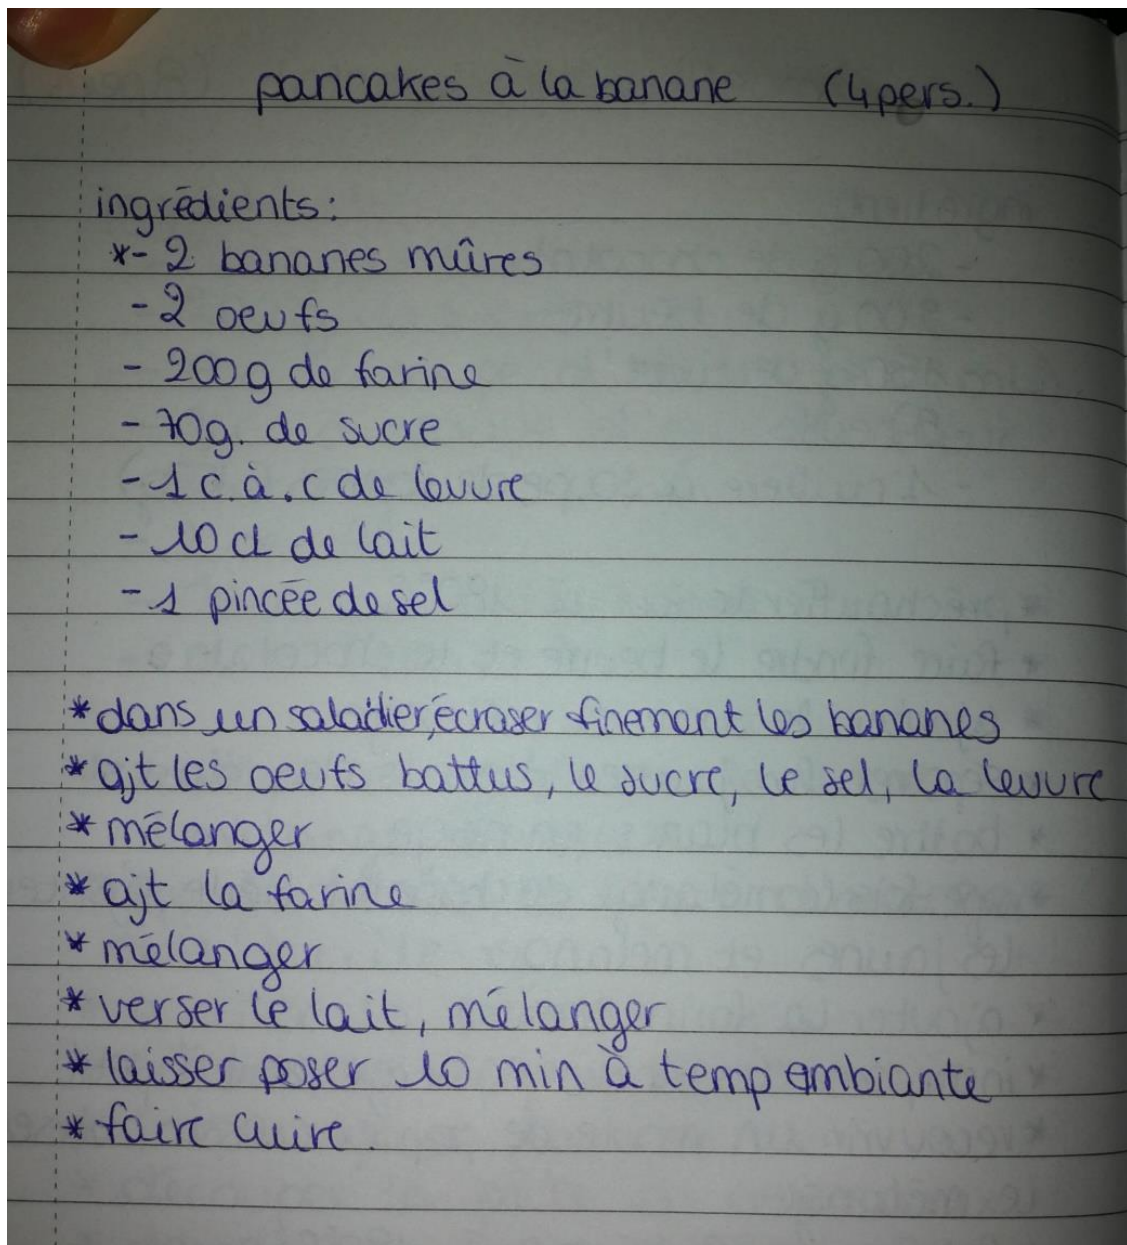 pancakes à la banane (4pers.)
ingrédients:
*- 2 bananes mûres
- 2 oeufs
- 200g de farine
- 70g. de sucre
- 1 c.à.c de levure
- 10 cl de lait
- 1 pincée de sel
* dans un saladier, écraser finement les bananes
* ajt les oeufs battus, le sucre, le sel, la levure
* mélanger
* ajt la farine
* mélanger
* verser le lait, mélanger
* laisser poser 10 min à temp ambiante
* faire cuire.